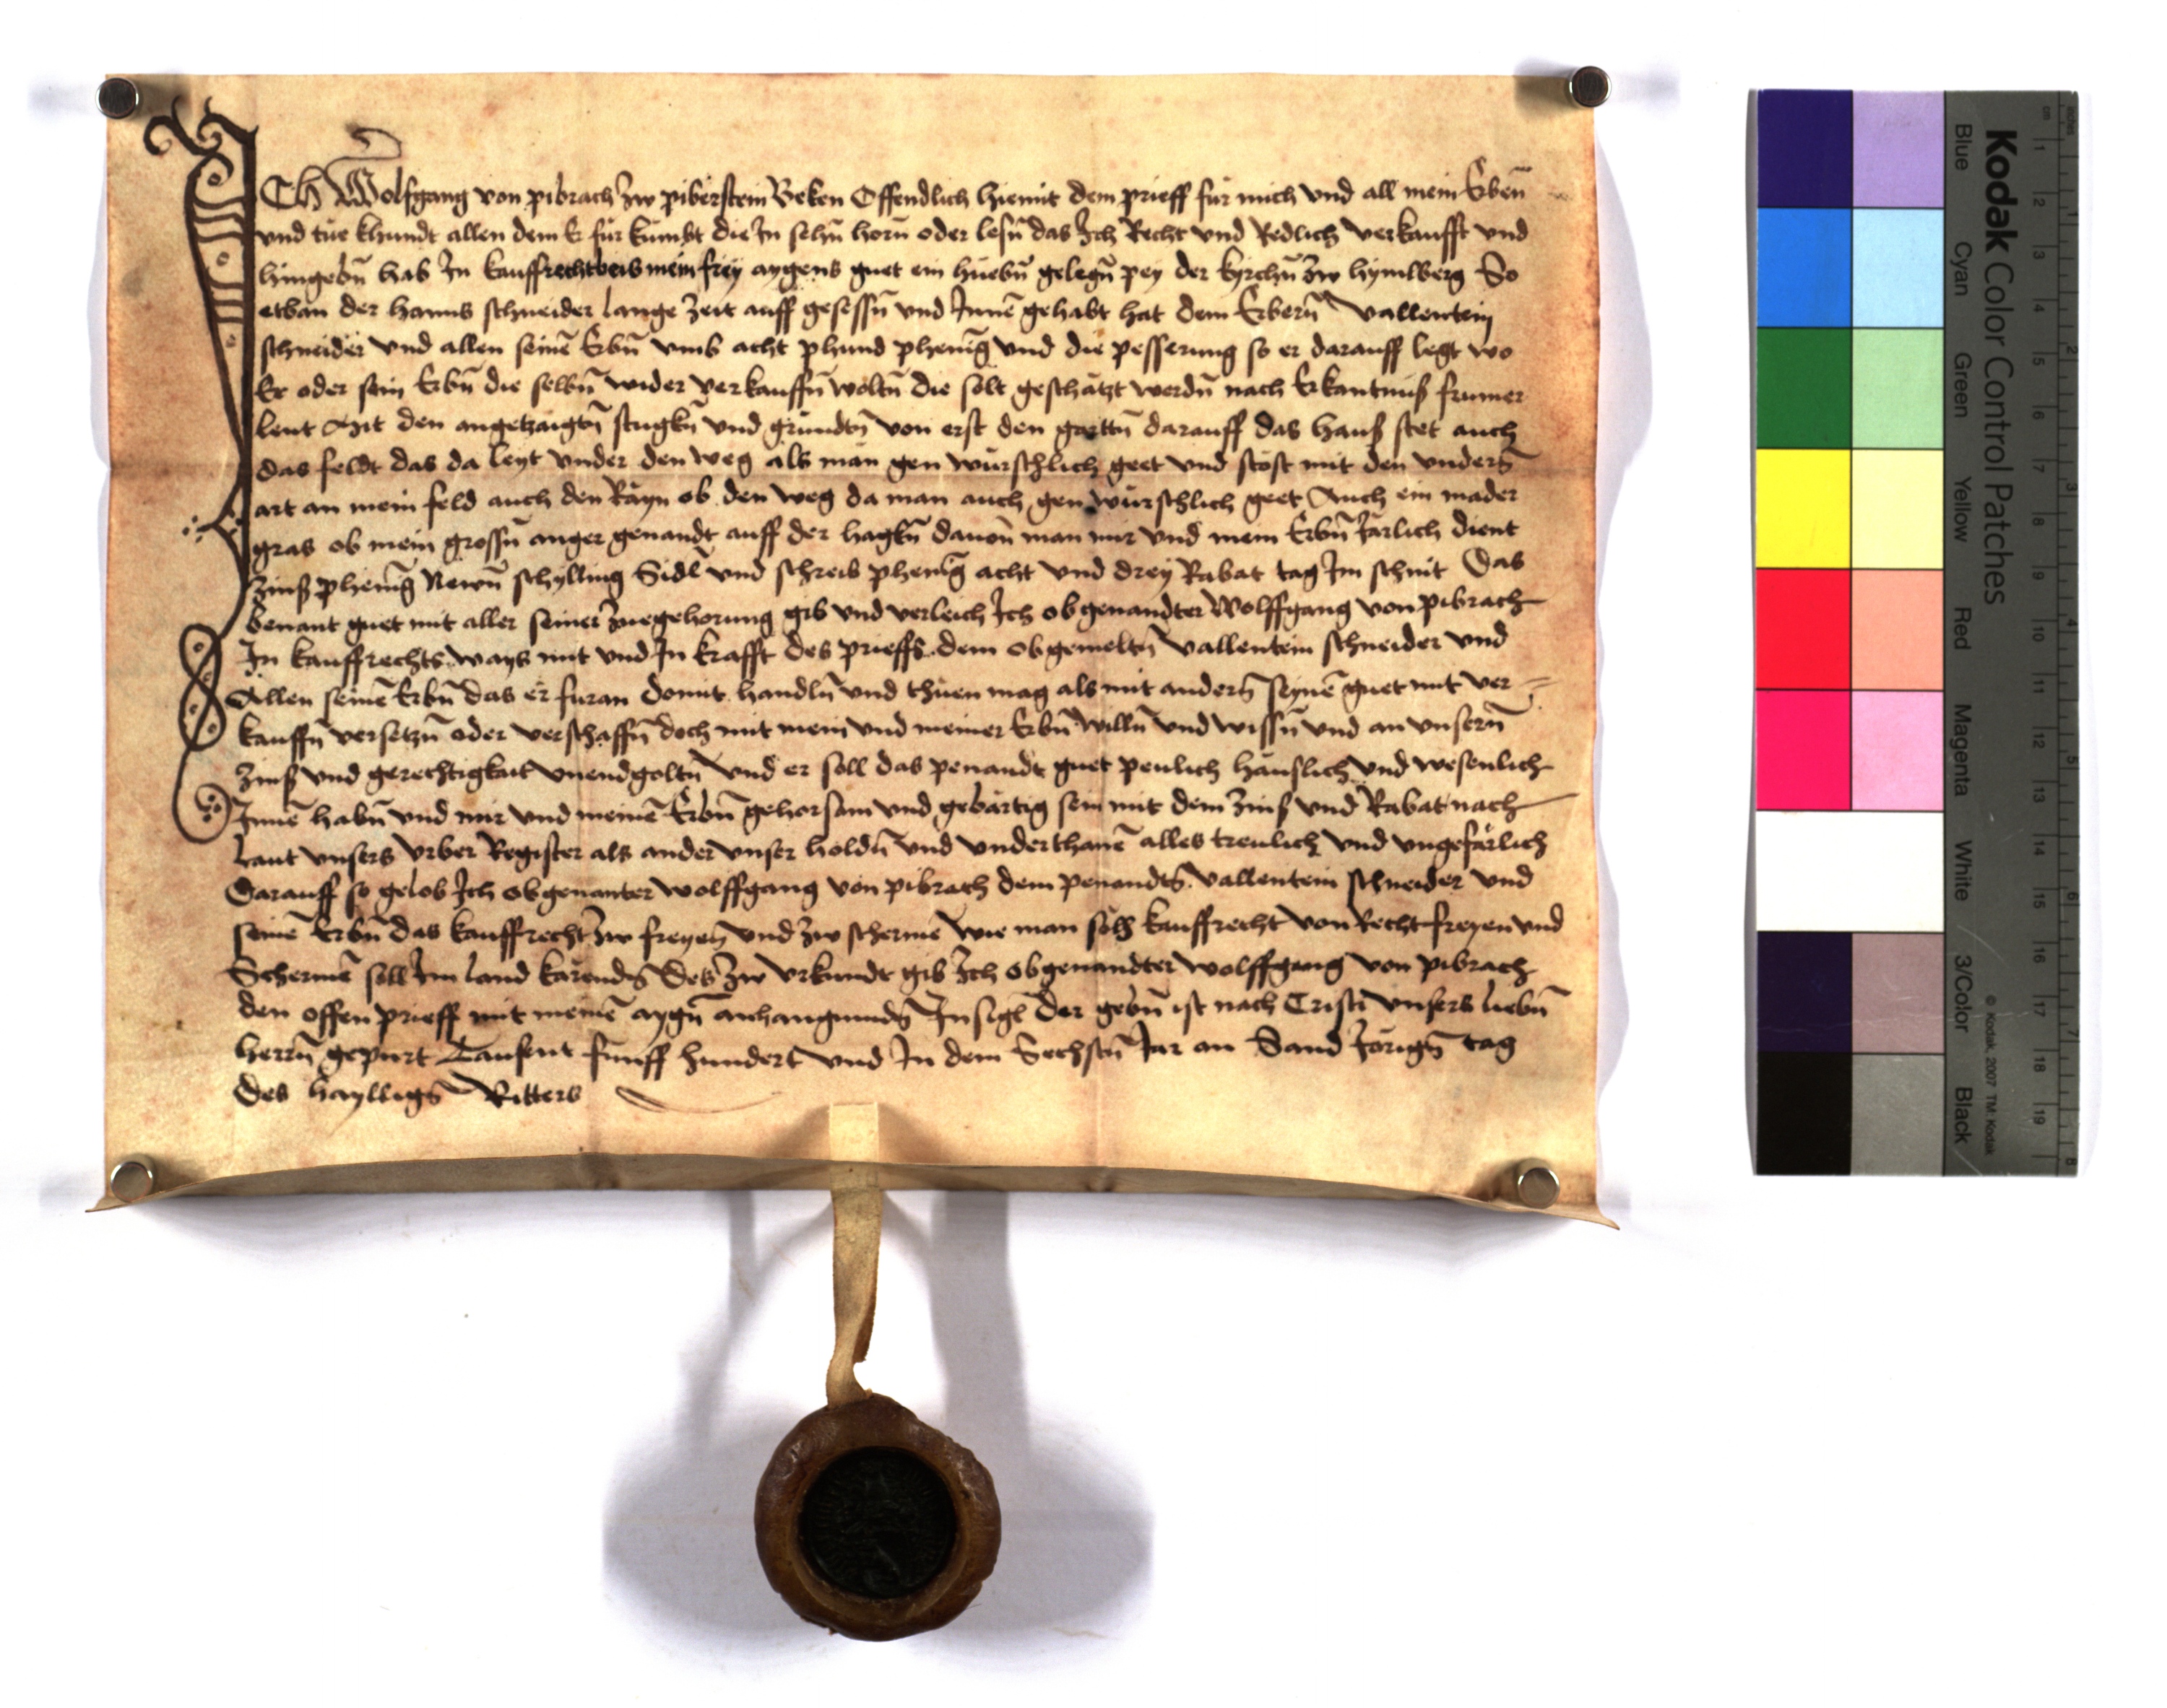 ICh Wolfgang von pibrach zw piberstein Beken Offendlich hiemit dem prieff für mich vnd all mein Erben̄
vnd tüe khundt allen dem Er für kumbt die In sehn̄ horn̄ oder lesn̄ das Ich Recht vnd Redlich verkaufft vnd
hingebn̄ hab In kauffrechtbeis mein frey aygens guet ein hüebn̄ gelegn̄ pey der kyrchn̄ zw hymlberg So
etban der hanns schneider lange zeit auff gesessn̄ vnd Innē gehabt hat dem Erbern̄ vallentein
schneider vnd allen seinē Erbn̄ vmb acht phund phenīg vnd die pesserung so er darauff legt wo
Er oder sein Erbn̄ die selbn̄ wider verkauffn̄ woltn̄ die solt geschätzt werdn̄ nach Erkantnuß frumer
leut Mit den angetzaigtn̄ stugkn̄ vnd gründtn̄ von erst den garttn̄ darauff das hauß stet auch
das feldt das da leyt vnder den weg als man gen würschlich geet vnd stöst mit den vnderñ
art an mein feld auch den Rayn ob den weg da man auch gen würschlich geet Auch ein mader
gras ob mein grossn̄ anger genandt auff der hagkn̄ dauon̄ man mir vnd mein Erbn̄ Järlich dient
zinß phenīg Newn̄ schylling Sidl vnd schreib phenīg acht vnd drey Rabat tag Im schnit Das
benant guet mit aller seiner zuegehorung gib vnd verleich Ich obgenandter Wolffgang von pibrach
In kauffrechts ways mit vnd In krafft des prieffs dem obgemeltn̄ vallentein schneider vnd
Allen seinē Erbn̄ das er füran domit handln̄ vnd thuen mag als mit andern̄ seynē guet mit ver=
kauffn̄ versetzn̄ oder verschaffn̄ doch mit mein vnd meiner Erbn̄ willn̄ vnd wissn̄ vnd an vnsern̄
zinß vnd gerechtigkait vnendgoltn̄ vnd er soll das penandt guet peulich häuslich vnd wesenlich
Innē habn̄ vnd mir vnd meinē Erbn̄ gehorsam vnd gebärtig sein mit dem zinß vnd Rabat nach
laut vnsers Vrber Register als ander vnser holdn̄ vnd vnderthanē alles treulich vnd vngefärlich
Darauff so gelob Ich obgenanter wolffgang von pibrach dem penandtn̄ vallentein schneider vnd
seinē Erbn̄ das kauffrecht zw freyen̄ vnd zw schermē wie man solh kauffrecht von Recht freyen vnd
Schermē soll Im land kärendn̄ Des zw vrkundt gib Ich obgenandter wolffgang von pibrach
den offen prieff mit meinē aygn̄ anhangundn̄ Insigl Der gebn̄ ist nach Cristi vnsers liebn̄
herrn̄ gepurt Tausent fünff hundert vnd In dem Sechstn̄ Jar an Sand Jörign̄ tag
des haylligñ Ritters
Kodak Color Control Patches
Blue Cyan Green Yellow Red Magenta White 3/Color Black
© Kodak, 2007 TM: Kodak
cm 1 2 3 4 5 6 7 8 9 10 11 12 13 14 15 16 17 18 19
inches 1 2 3 4 5 6 7 8